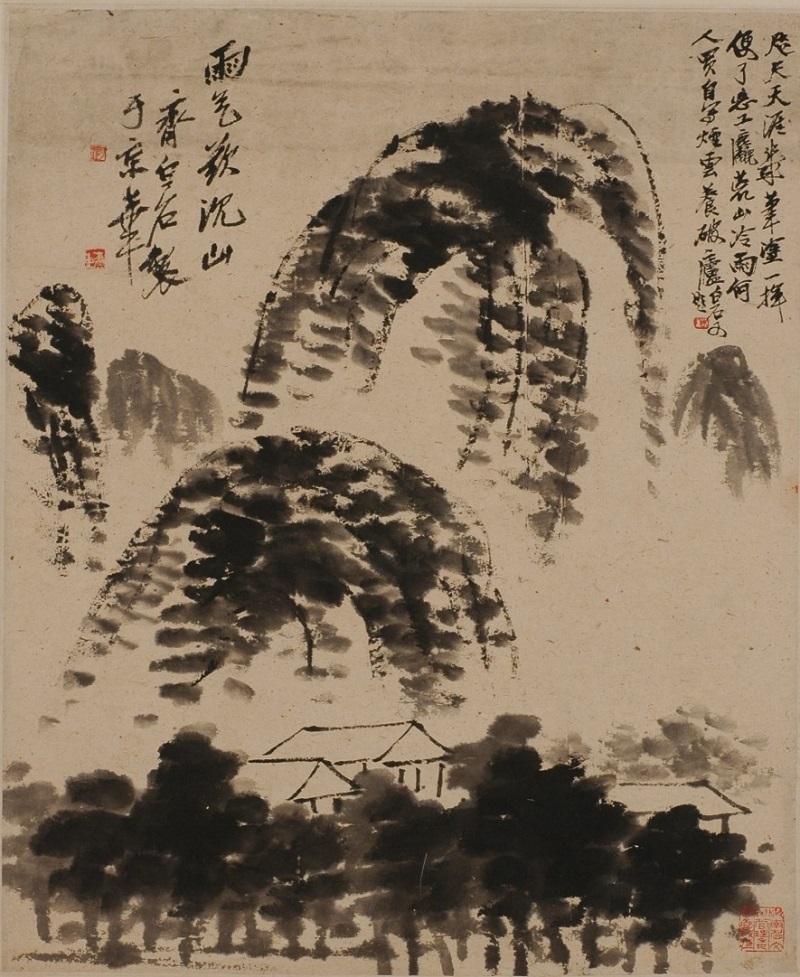 咫尺天涯幾筆塗一揮
便了工麤荒山冷雨何
人買自煙雲養破廬白石又題
雨气欲沉山
齊白石製
于京華